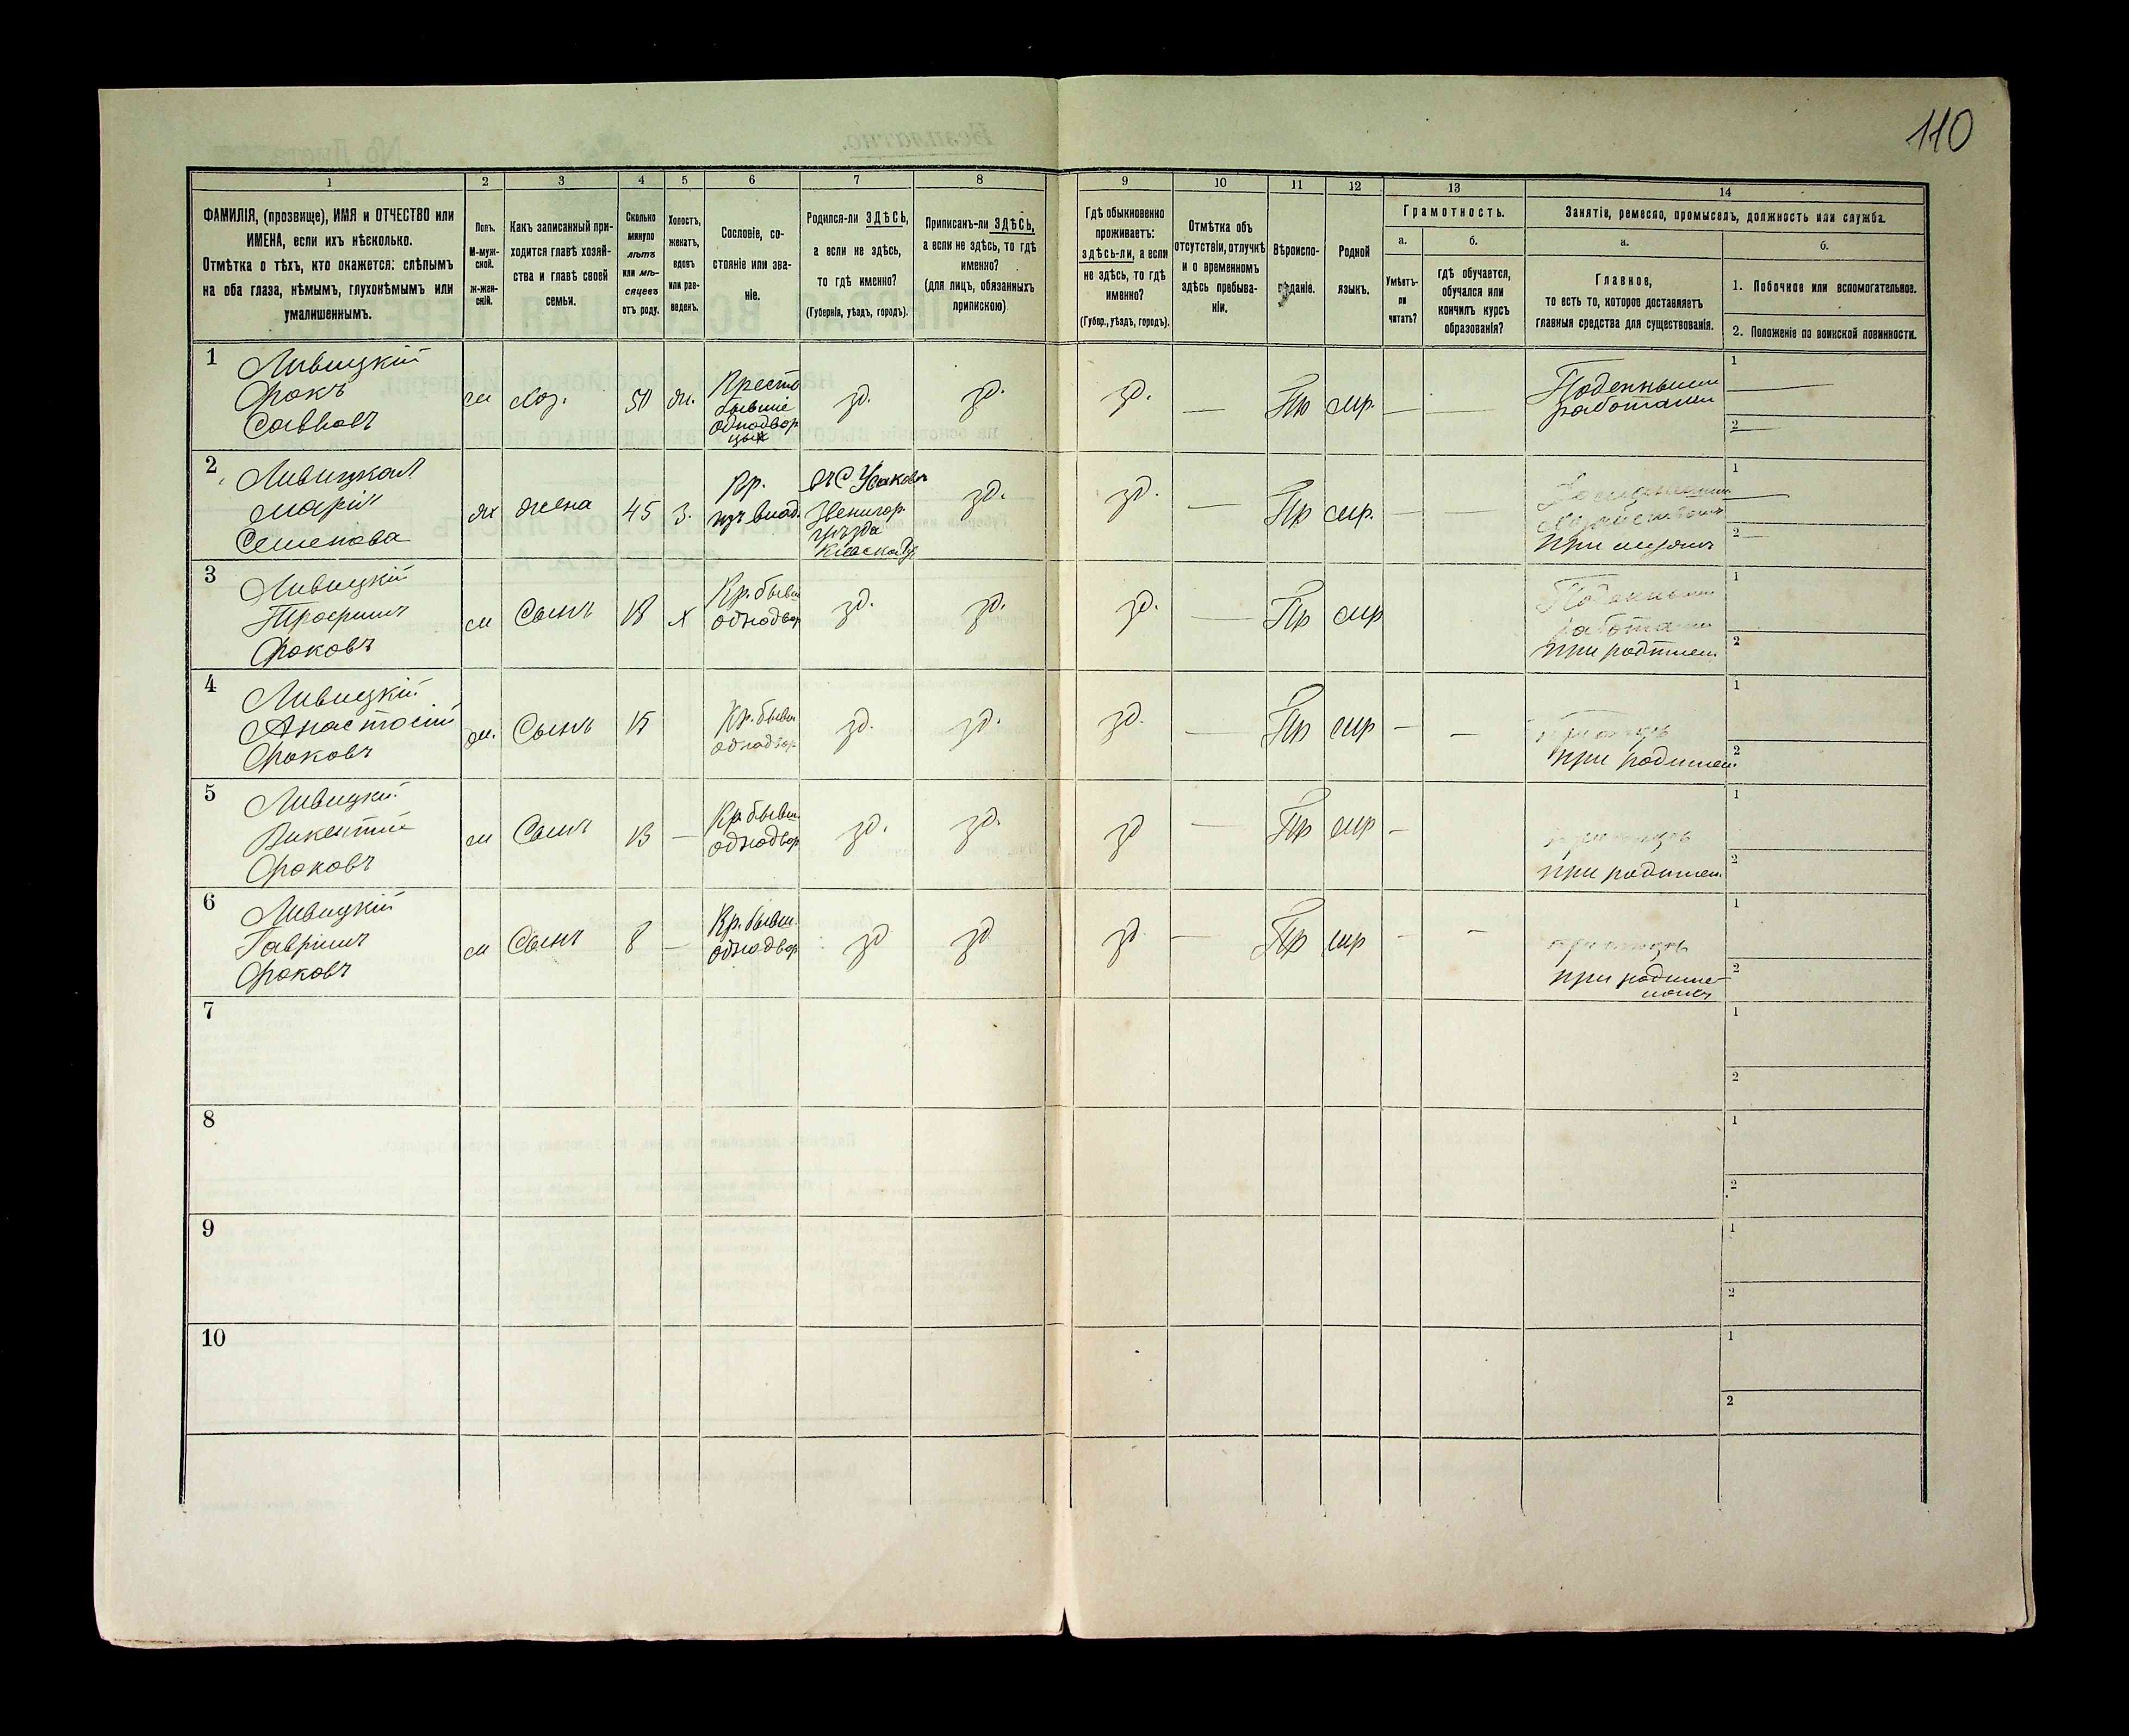 110
1
2
3
4
5
6
7
8
9
10
11
12
13
14
ФАМИЛІЯ, (прозвище), ИМЯ и ОТЧЕСТВО или
ИМЕНА, если ихъ нѣсколько.
Отмѣтка о тѣхъ, кто окажется: слѣпымъ
на оба глаза, нѣмымъ, глухонѣмымъ или
умалишеннымъ.
Полъ.
М-муж-
ской.
ж-жен-
скій.
Какъ записанный при-
ходится главѣ хозяй-
ства и главѣ своей
семьи.
Сколько
минуло
лѣтъ
или мѣ-
сяцевъ
отъ роду.
Холостъ,
женатъ,
вдовъ
или раз-
веденъ.
Сословіе, со-
стояніе или зва-
ніе.
Родился-ли ЗДѢСЬ,
а если не здѣсь,
то гдѣ именно?
(Губернія, уѣздъ, городъ).
Приписанъ-ли ЗДѢСЬ,
а если не здѣсь, то гдѣ
именно?
(для лицъ, обязанныхъ
припискою)
Гдѣ обыкновенно
проживаетъ:
здѣсь-ли, а если
не здѣсь, то гдѣ
именно?
(Губер., уѣздъ, городъ).
Отмѣтка объ
отсутствіи, отлучкѣ
и о временномъ
здѣсь пребыва-
ніи.
Вѣроиспо-
вѣданіе.
Родной
языкъ.
Грамотность.
а.
Умѣетъ-
ли
читать?
б.
гдѣ обучается,
обучался или
кончилъ курсъ
образованія?
Занятіе, ремесло, промыселъ, должность или служба.
а.
Главное,
то есть то, которое доставляетъ
главныя средства для существованія.
б.
1. Побочное или вспомогательное.
2. Положеніе по воинской повинности.
1 Ливицкій
Фокъ
Саввовъ
м
хоз.
50
ж.
Кресть
бывшіе
однодвор
цы
зд.
зд.
зд.
—
Пр
мр.
—
—
Поденными
работами
1
2
2 Ливицкая
Марія
Семенова
ж
жена
45
з.
Кр.
изъ влад.
Звенигор.
уѣзда
зд.
зд.
—
Пр
мр.
—
—
при мужѣ
1
2
3 Ливицкій
Трофимъ
Фоковъ
м
Сынъ
18
х
Кр. бывш
однодвор
зд.
зд.
зд.
—
Пр
мр
Поденными
работами
при родител
1
2
4 Ливицкій
Анастасій
Фоковъ
м.
Сынъ
15
Кр. бывш
однодвор
зд.
зд.
зд.
—
Пр
мр
—
—
при отцѣ
при родител
1
2
5 Ливицкій
Викентій
Фоковъ
м
Сынъ
13
—
Кр. бывш
однодвор
зд.
зд.
зд
—
Пр
мр
—
при отцѣ
при родител
1
2
6 Ливицкій
Гавріилъ
Фоковъ
м
Сынъ
8
—
Кр. бывш.
однодвор
зд
зд
зд
—
Пр
мр
—
—
при отцѣ
при родите-
ляхъ
1
2
7
1
2
8
1
2
9
1
2
10
1
2